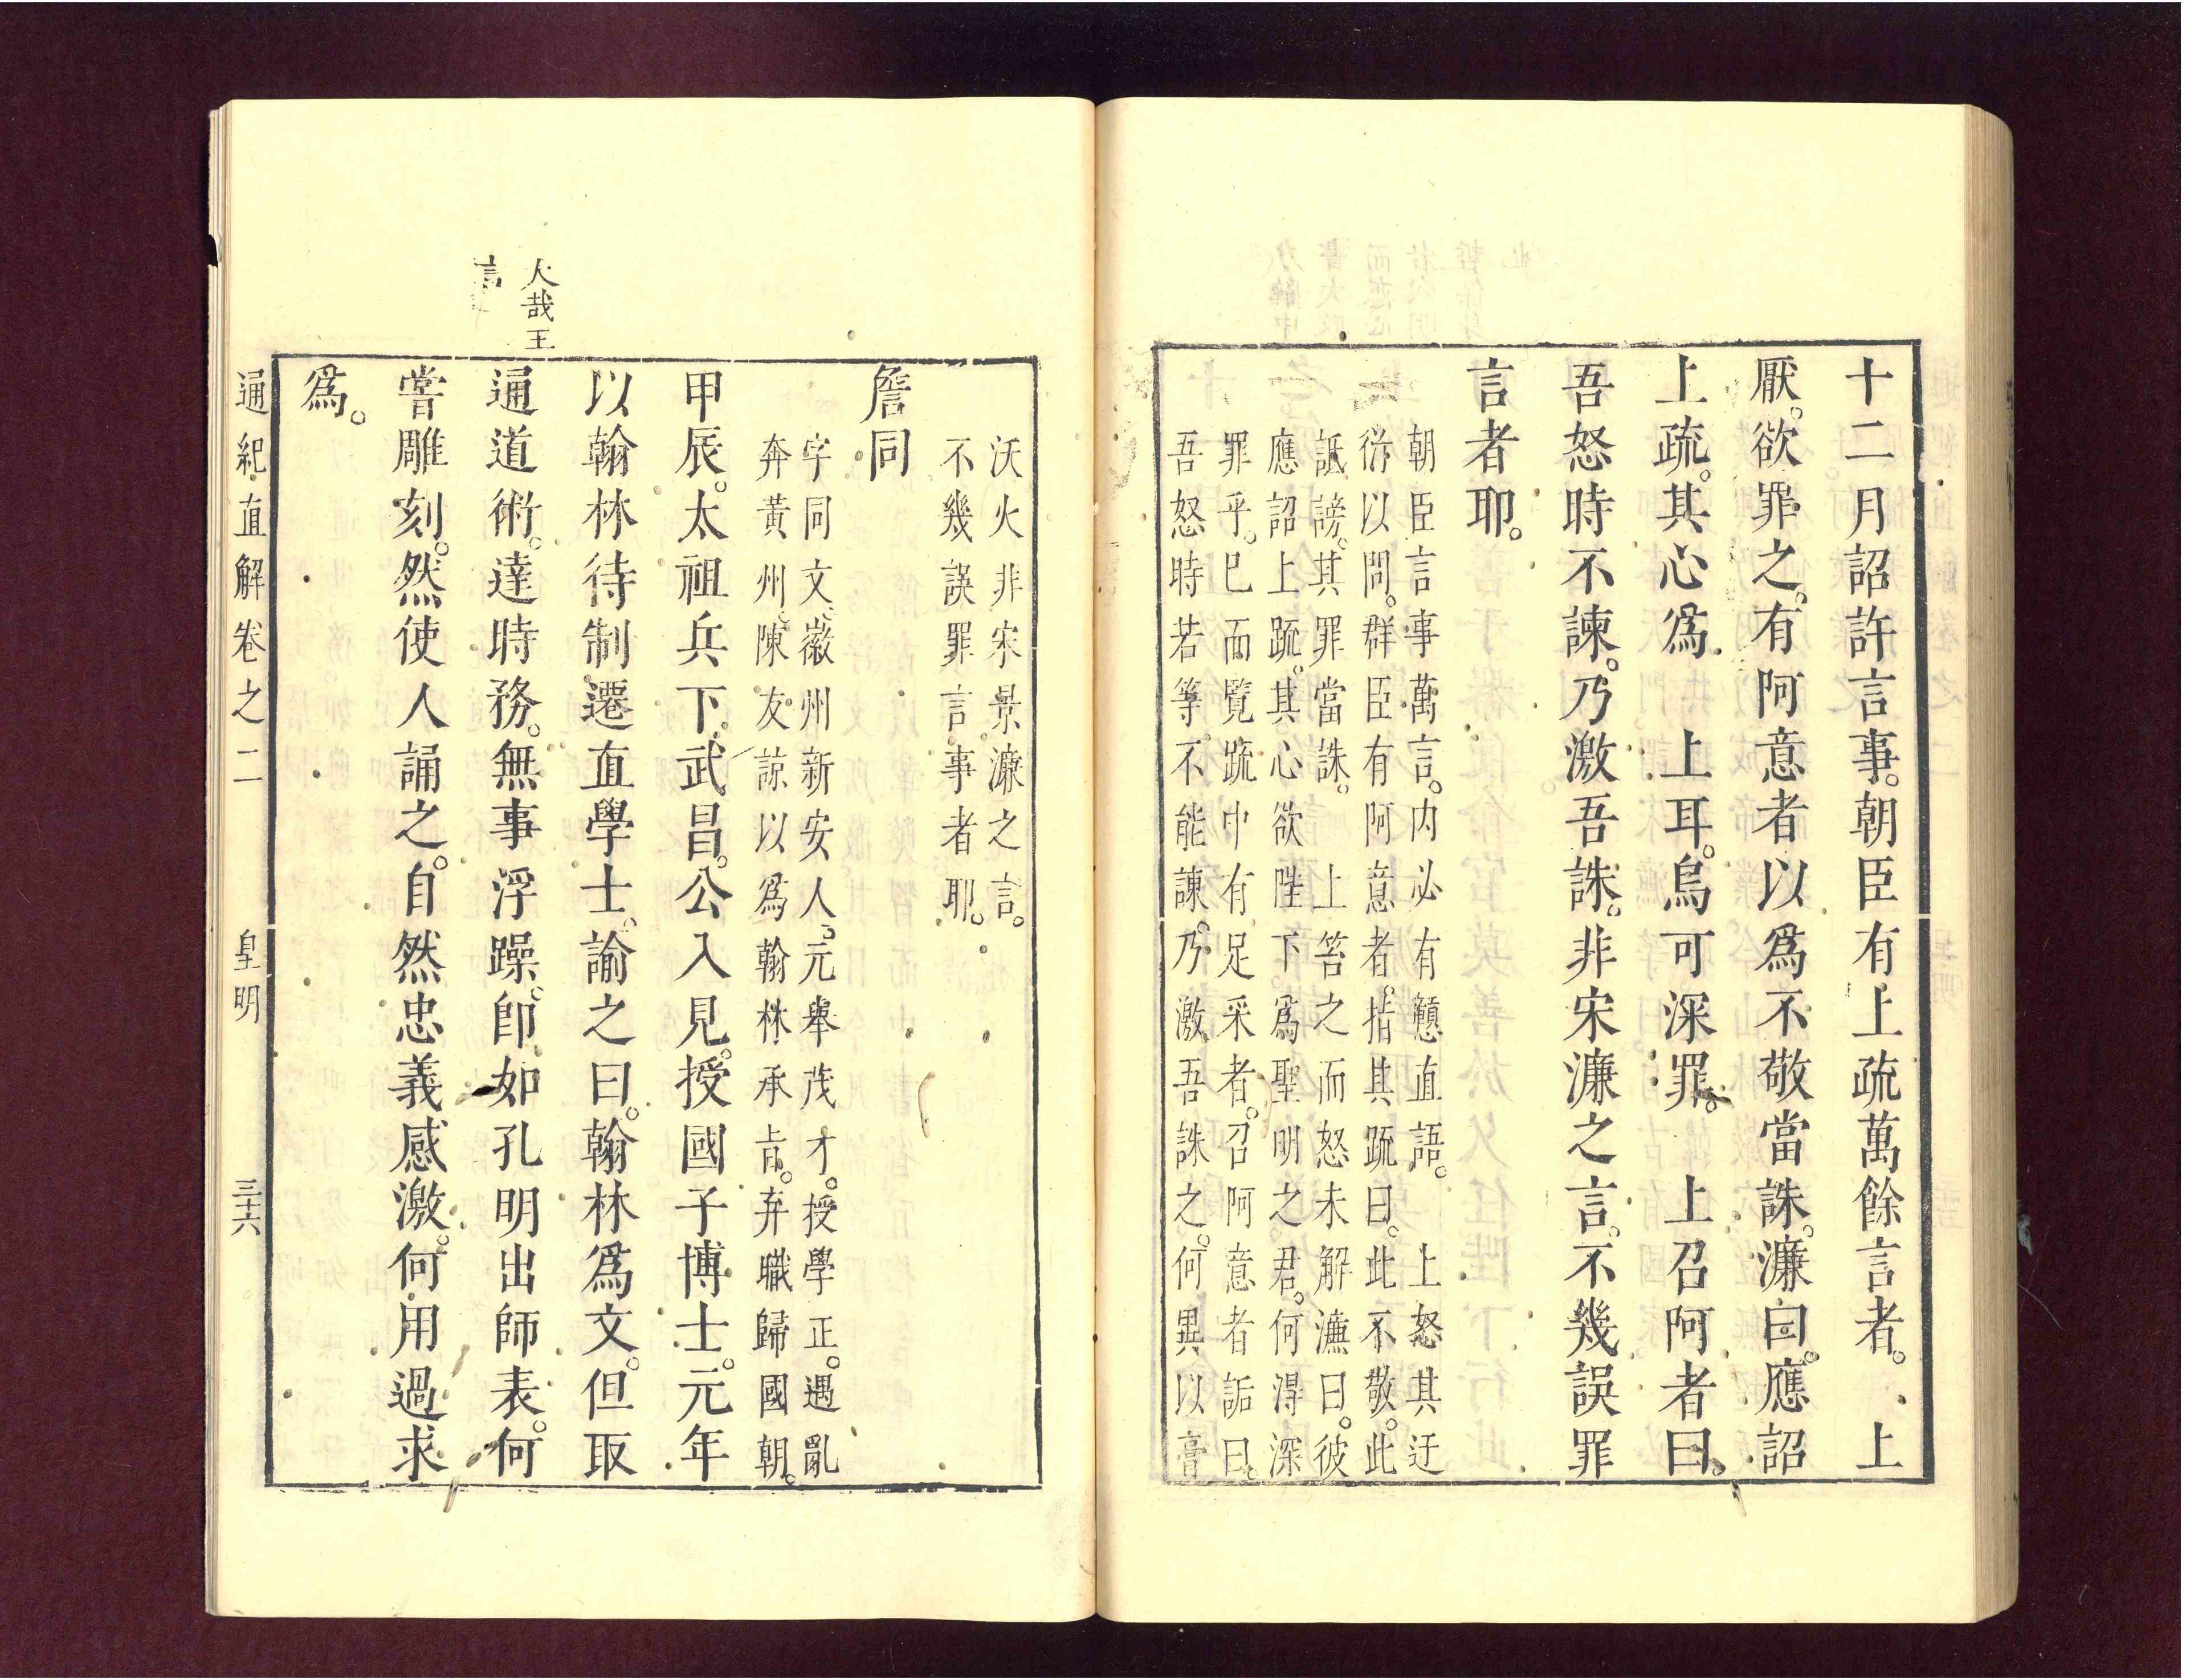 十二月詔許言事。朝臣有上疏萬餘言者。　上
厭。欲罪之。有阿意者以爲不敬當誅。濂曰。應詔
上疏。其心爲　上耳。烏可深罪。　上召阿者曰。
吾怒時不諫。乃激吾誅。非宋濂之言。不幾誤罪
言者耶。
朝臣言事萬言。内必有戇直語。　上怒其迂
衍以問。群臣有阿意者。指其疏曰。此不敬。此
詆謗。其罪當誅。　上笞之而怒未解濂曰。彼
應詔上疏。其心欲陛下爲聖明之君。何得深
罪乎。已而覽疏中有足采者。召阿意者詬曰。
吾怒時若等不能諫。乃激吾誅之。何異以膏
沃火非宋景濂之言。
不幾誤罪言事者耶。
詹同
字同文、徽州新安人。元舉茂才。授學正。遇亂
奔黃州、陳友諒以爲翰林承旨。弃職歸國朝。
甲辰。太祖兵下武昌。公入見。授國子博士。元年
以翰林待制遷直學士。諭之曰。翰林爲文。但取
通道術。達時務。無事浮躁。卽如孔明出師表。何
嘗雕刻。然使人誦之。自然忠義感激。何用過求
爲。
大哉王
言
通紀直解卷之二　皇明　三十六